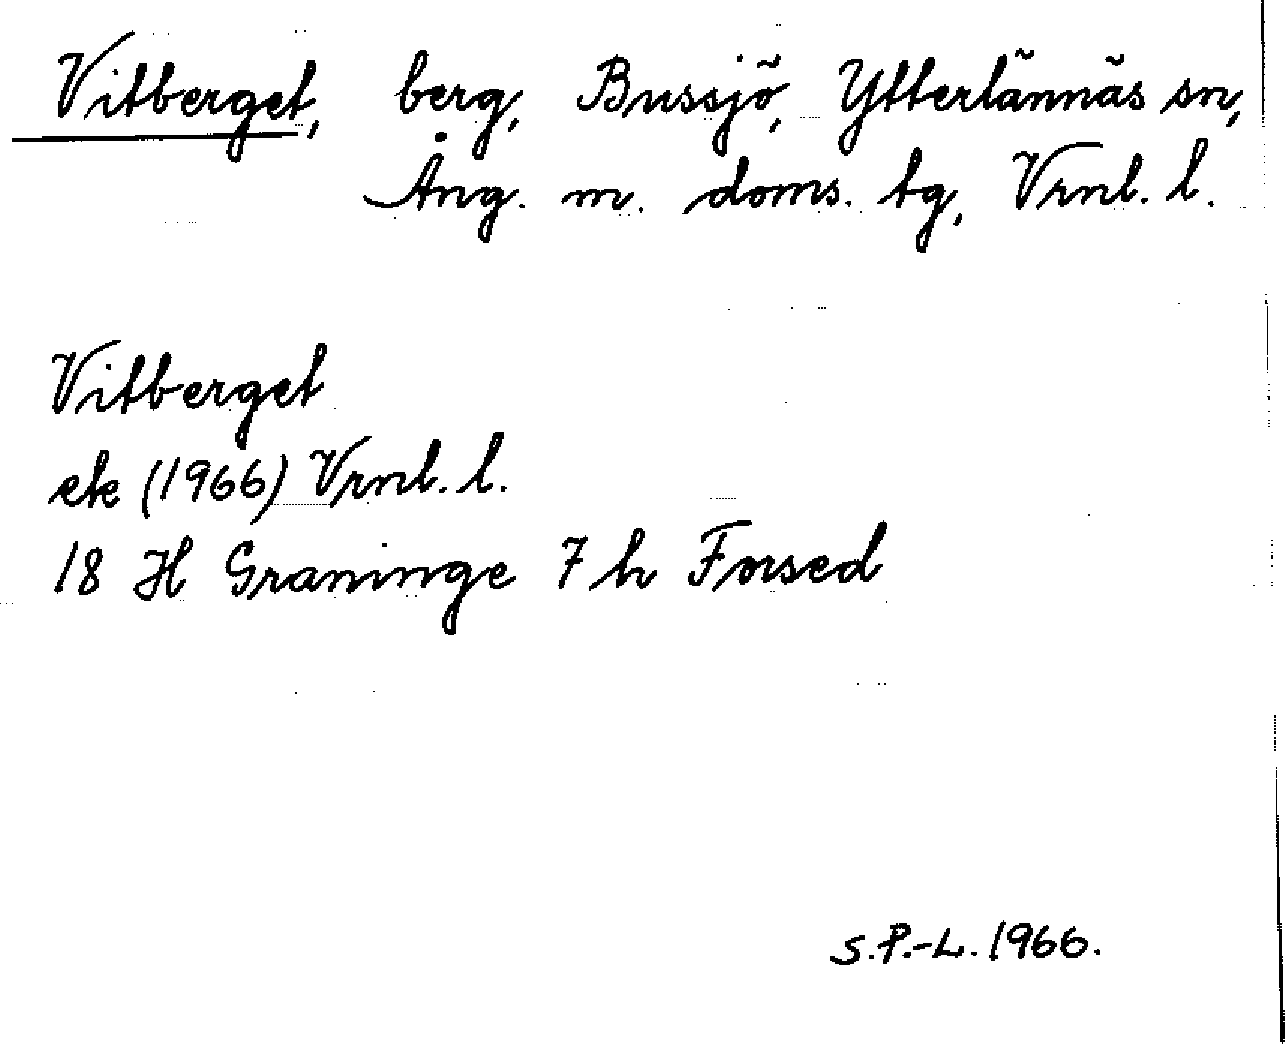 Vitberget, berg, Bussjö, Ytterlännäs sn,
Ång. m. doms. tg, Vrnl. l.
Vitberget
ek (1966) Vrnl. l.
18 H Graninge 7 h Forsed
S.P.-L. 1966.